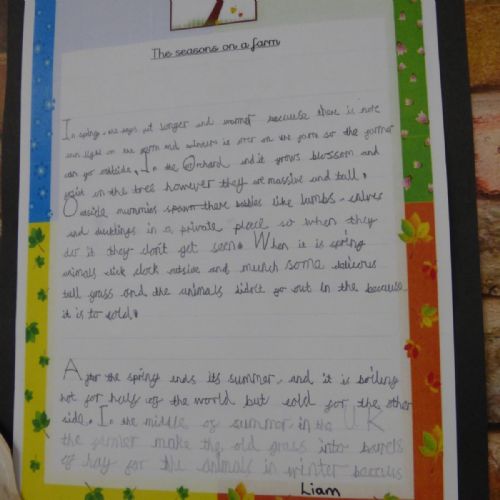 The seasons on a farm
In spring the days get longer and warmer because there is more
sun light on the farm and winter is over on the farm so the farmer
can go outside. In the Orchard and it grows blossom and
fruit on the tree however they are massive and tall.
Outside mummies spawn there babies like lambs, calves
and ducklings in a private place so when they
do it they don't get seen. When it is spring
animals click clock outside and munch some delicous
tall grass and the animals didn't go out in the because
it is to cold.
After the spring ends its summer, and it is boiling
hot for half of the world but cold for the other
side. In the middle of summer in the UK
the farmer make the old grass into barrels
of hay for the animals in winter
Liam